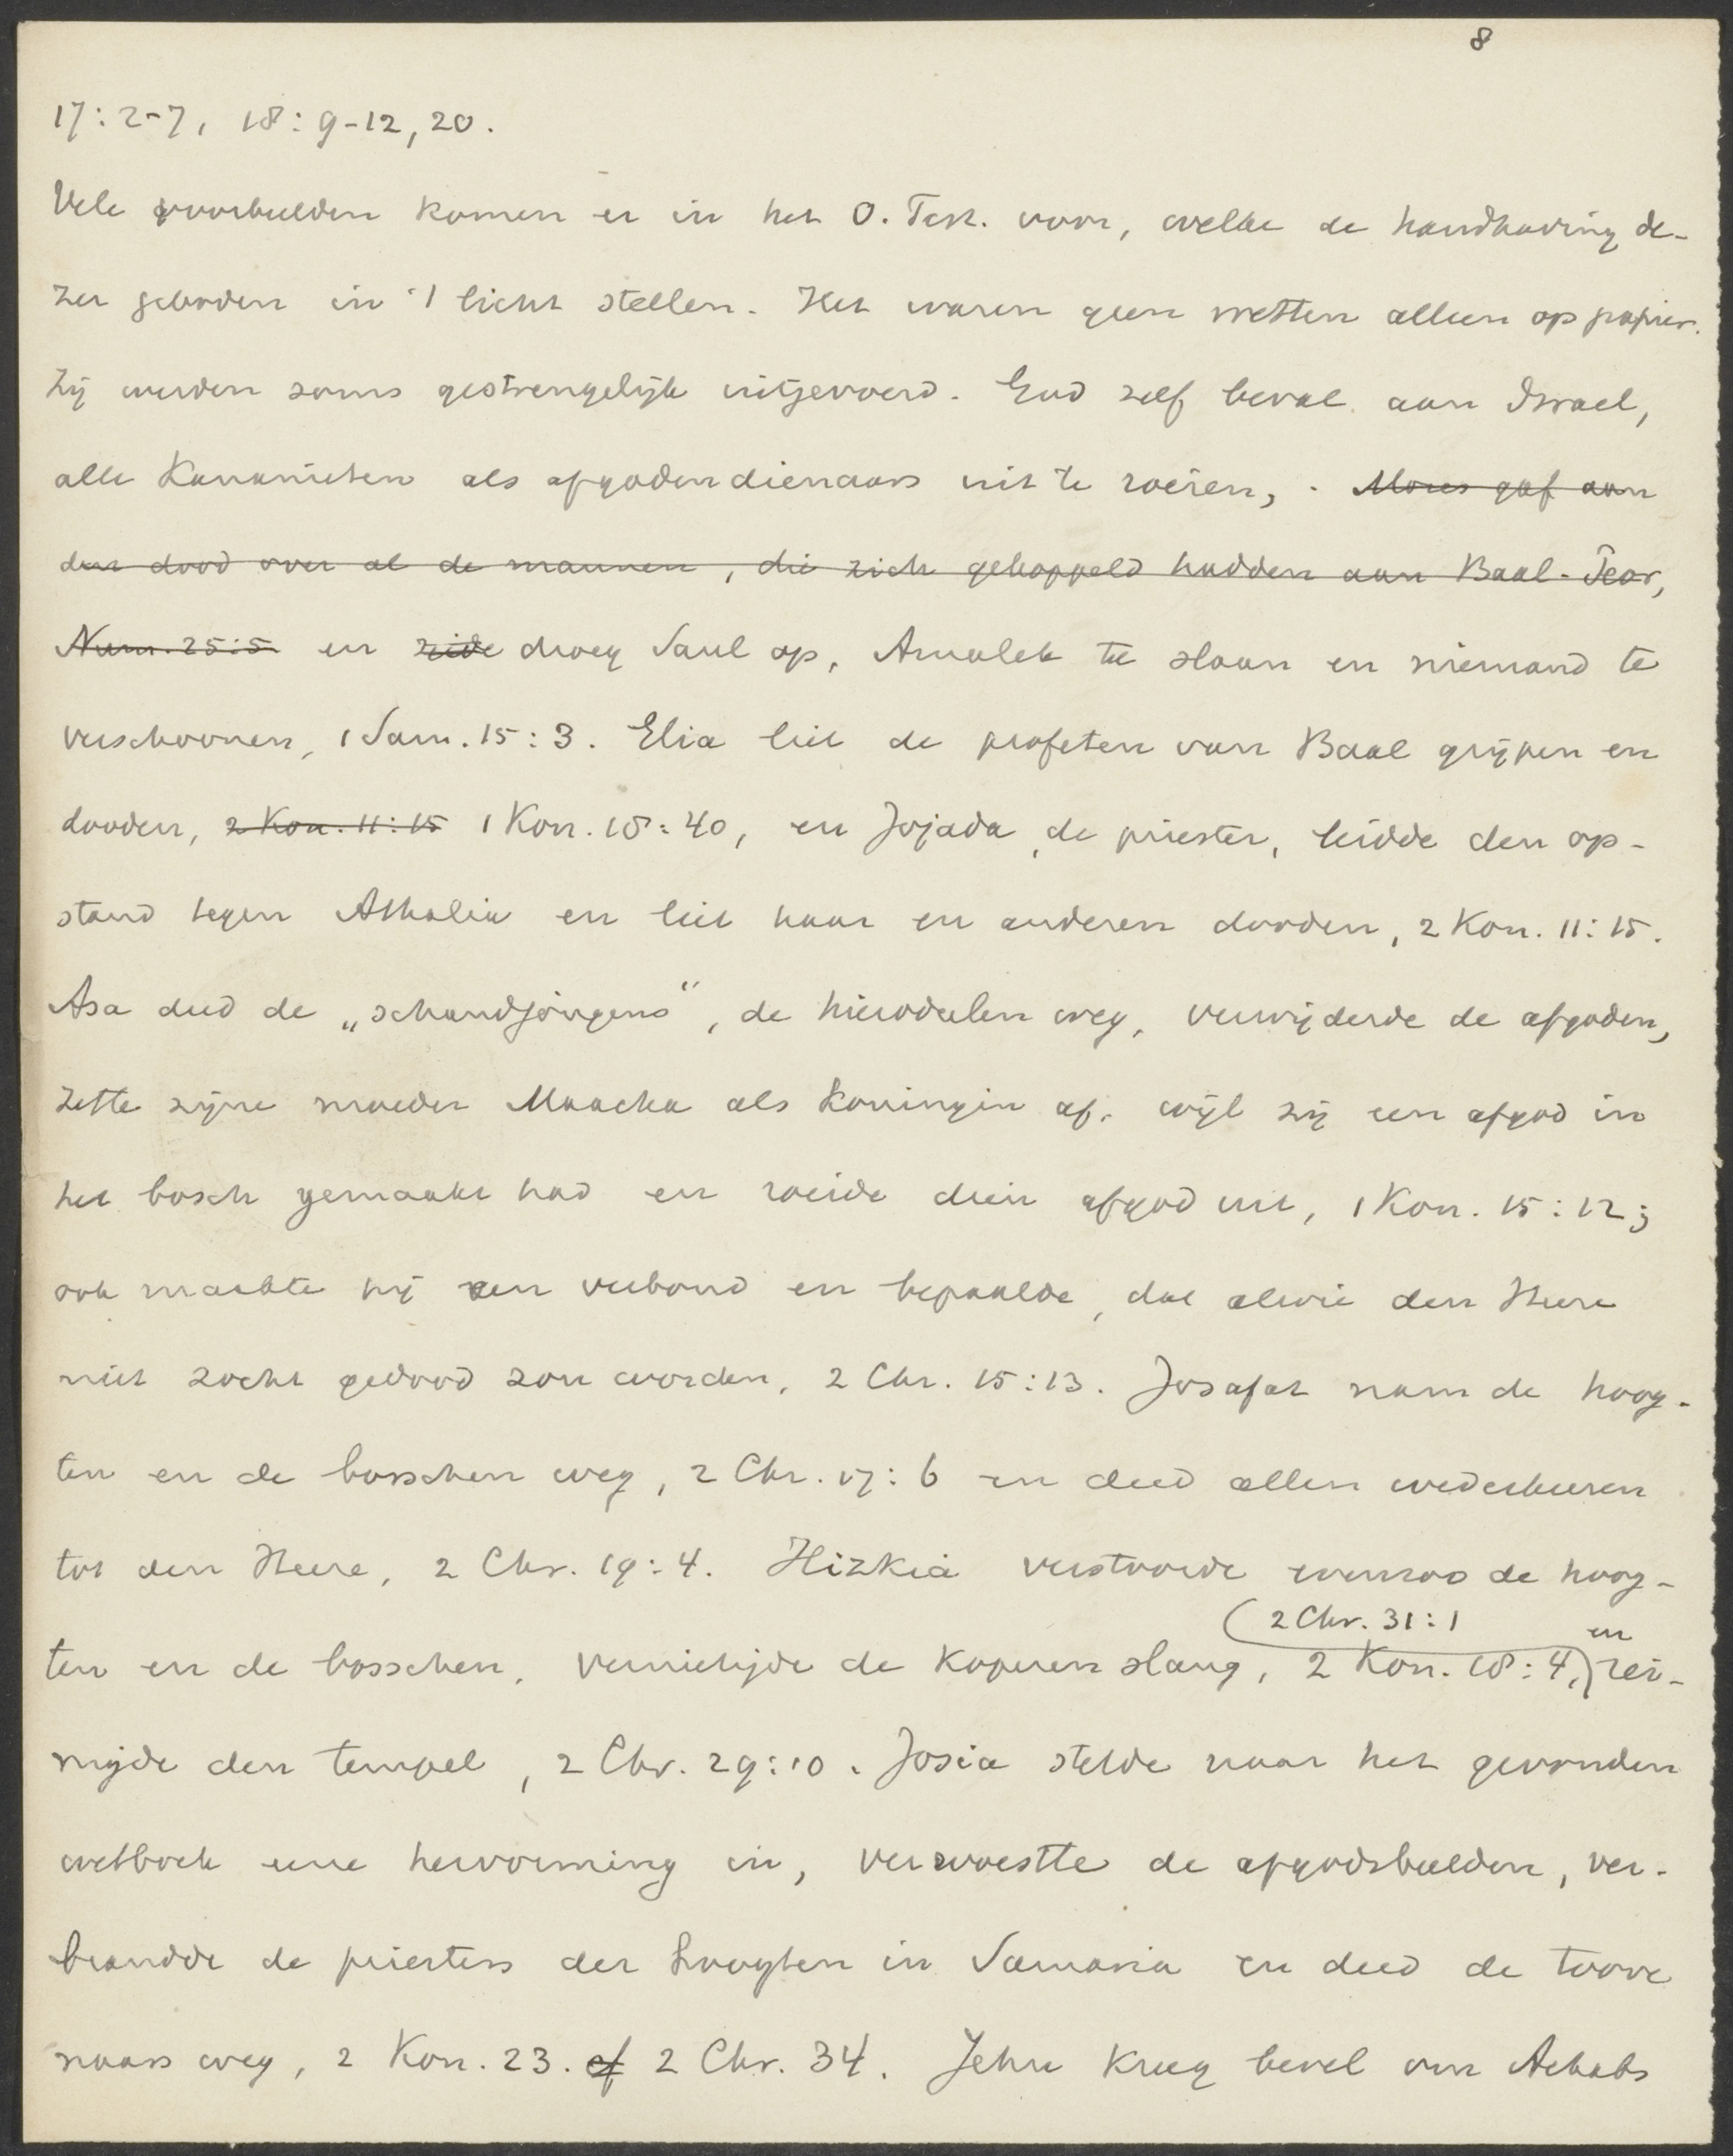 8
17:2-7, 18:9-12, 20.
Vele voorbeelden komen er in het O. Test. voor, welke de handhaving de-
zer geboden in 't licht stellen. Het waren geen wetten alleen op papier.
Zij werden soms gestrengelijk uitgevoerd. God zelf beval aan Israel,
alle Kanaänieten als afgodendienaars uit te roeien, . Mozes gaf aan
den dood over al de mannen, die zich gekoppeld hadden aan Baal-Peor,
Num. 25:5 en zeide droeg Saul op, Amalek te slaan en niemand te
verschoonen, 1 Sam. 15:3. Elia liet de profeten van Baal grijpen en
dooden, 2 Kon. 11:15 1 Kon. 18:40, en Jojada, de priester, leidde den op-
stand tegen Athalia en liet haar en anderen dooden, 2 Kon. 11:15.
Asa deed de „schandjongens", de hierodulen weg, verwijderde de afgoden,
zette zijne moeder Maacha als koningin af, wijl zij een afgod in
het bosch gemaakt had en roeide dien afgod uit, 1 Kon. 15:12;
ook maakte hij een verbond en bepaalde, dat alwie den Heere
niet zocht gedood zou worden, 2 Chr. 15:13. Josafat nam de hoog-
ten en de bosschen weg, 2 Chr. 17:6 en deed allen wederkeeren
tot den Heere, 2 Chr. 19:4. Hizkia verstoorde evenzoo de hoog-
(2 Chr. 31:1 en
ten en de bosschen, vernietigde de koperen slang, 2 Kon. 18:4,) rei-
nigde den tempel, 2 Chr. 29:10. Josia stelde naar het gevonden
wetboek eene hervorming in, verwoestte de afgodsbeelden, ver-
brandde de priesters der hoogten in Samaria en deed de toove
naars weg, 2 Kon. 23. cf 2 Chr. 34. Jehu kreeg bevel om Achabs